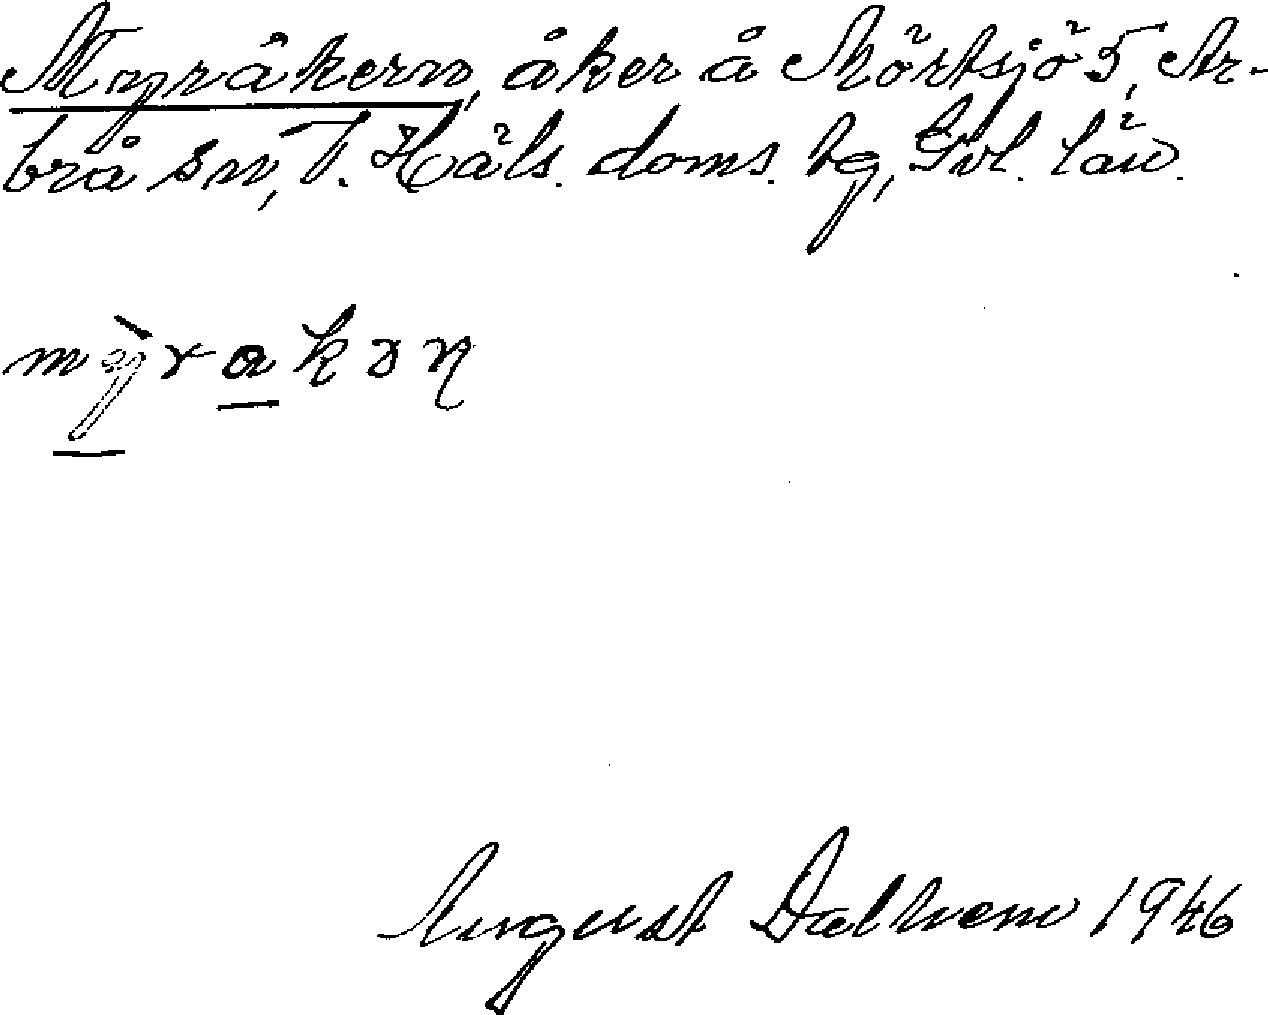 Myråkern, åker å Mörtsjö 5, Ar-
brå sn, V. Häls. doms. tg, Gvl. län.
mỳrakəɳ
August Dalhem 1946